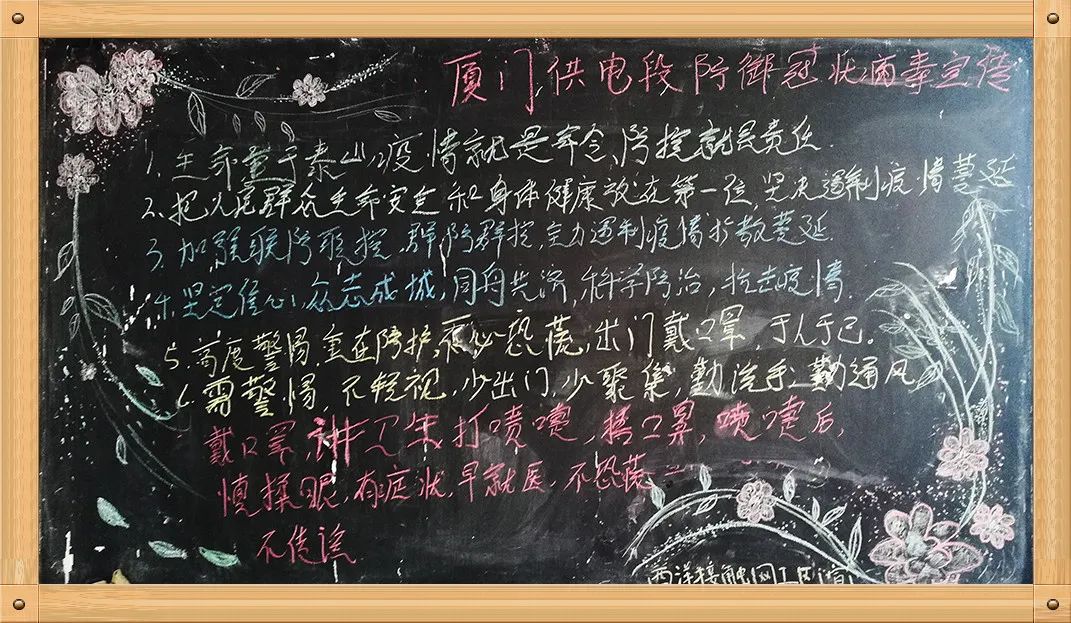 厦门供电段防御冠状病毒宣传
1.生命重于泰山,疫情就是命令、防控就是责任.
2.把人民群众生命安全和身体健康放在第一位,坚决遏制疫情蔓延
3.加强联防联控,群防群控,全力遏制疫情扩散蔓延.
4.坚定信心,众志成城,同舟共济,科学防治,抗击疫情.
5.高度警惕重在防护,不必恐慌,出门戴口罩,于人于己.
6.需警惕,不轻视,少出门,少聚集,勤洗手,勤通风
戴口罩,讲卫生打喷嚏,捂口罩,喷嚏后,
慎揉眼,有症状,早就医,不恐慌
不传谣
西洋接触网工区宣